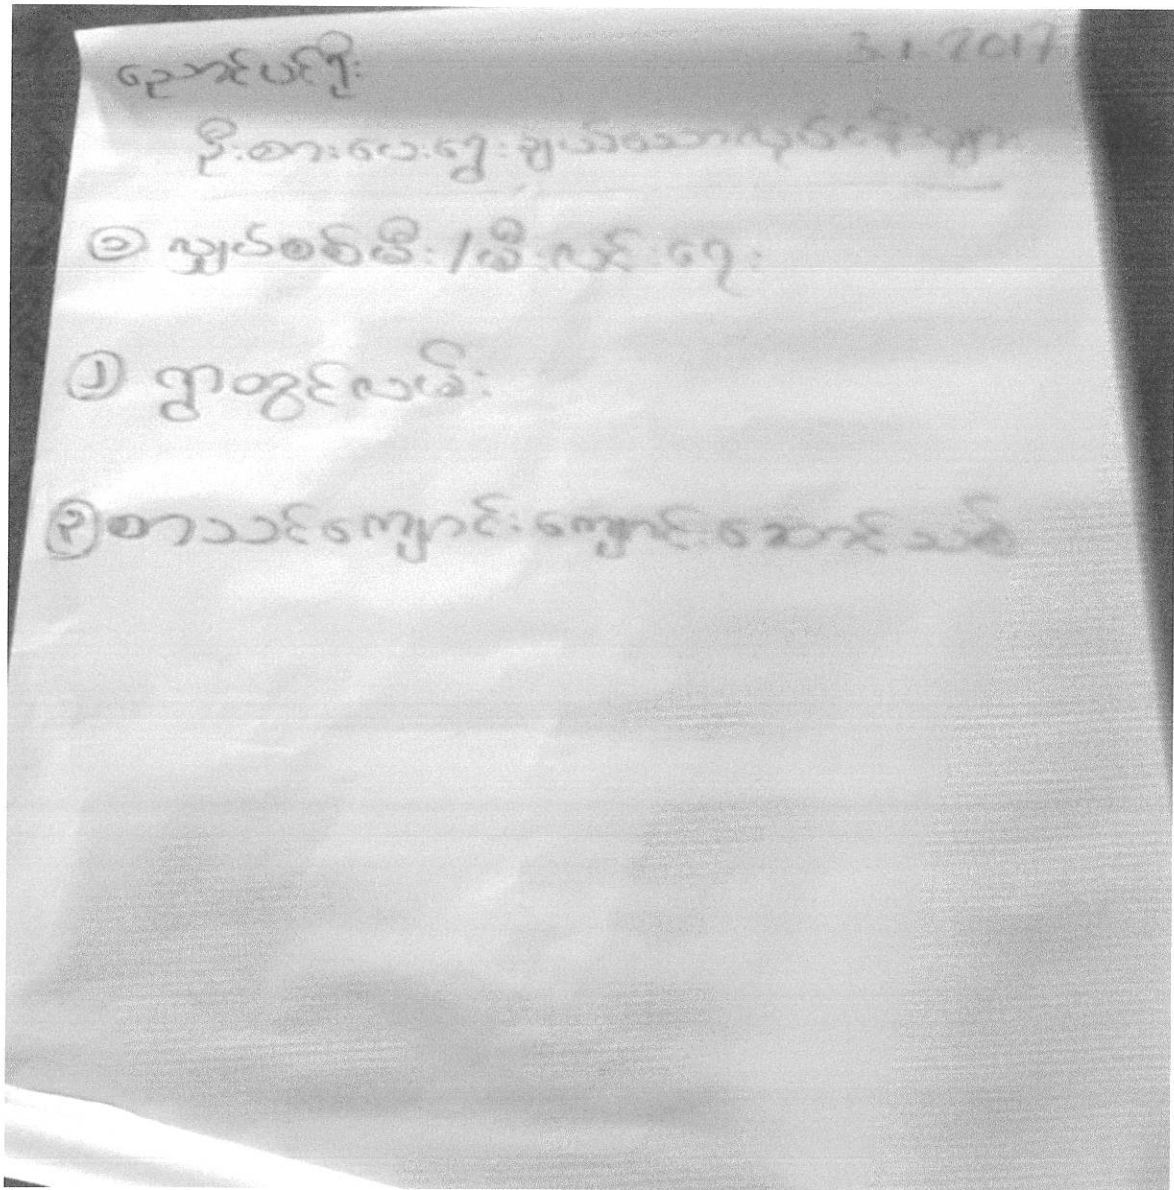 ညောင်ပင်ရိုး 3.1.2017
ဦးစားပေးရွေးချယ်သောလုပ်ငန်းများ
၁ လျှပ်စစ်မီး/မီးလင်းရေး
၂ ရွာတွင်းလမ်း
၃ စာသင်ကျောင်းကျောင်းဆောင်သစ်